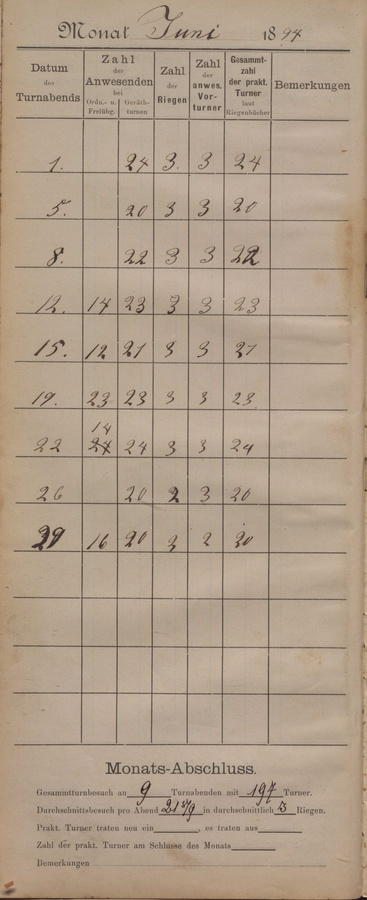 Monat Juni 1894
Datum des Turnabends
Zahl der Anwesenden bei
Ordn.- u. Freiübg.
Geräth-turnen
Zahl der Riegen
Zahl der anwes. Vor-turner
Gesammt-zahl der prakt. Turner laut Riegenbücher
Bemerkungen
1. 24 3. 3 24
5. 20 3 3 20
8. 22 3 3 22
12. 14 23 3 3 23
15. 12 21 3 3 21
19. 23 23 3 3 23
14
22 24 24 3 3 24
26 20 2 3 20
29 16 20 3 2 20
Monats-Abschluss.
Gesammtturnbesuch an 9 Turnabenden mit 197 Turner.
Durchschnittsbesuch pro Abend 21 8/9 in durchschnittlich 3 Riegen.
Prakt. Turner traten neu ein , es traten aus
Zahl der prakt. Turner am Schlusse des Monats
Bemerkungen